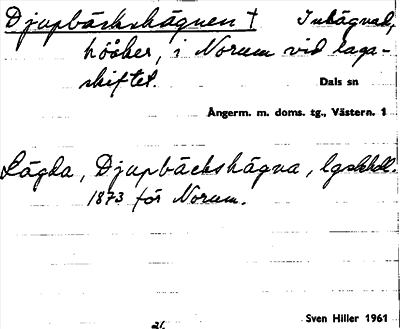 Djupbäckshägnen † Inhägnad,
hööker, i Norum vid laga-
skiftet.
Dals sn
Ångerm. m. doms. tg., Västern. 1
Lägda, Djupbäckshägna, lgskhdl.
1873 för Norum.
Sven Hiller 1961